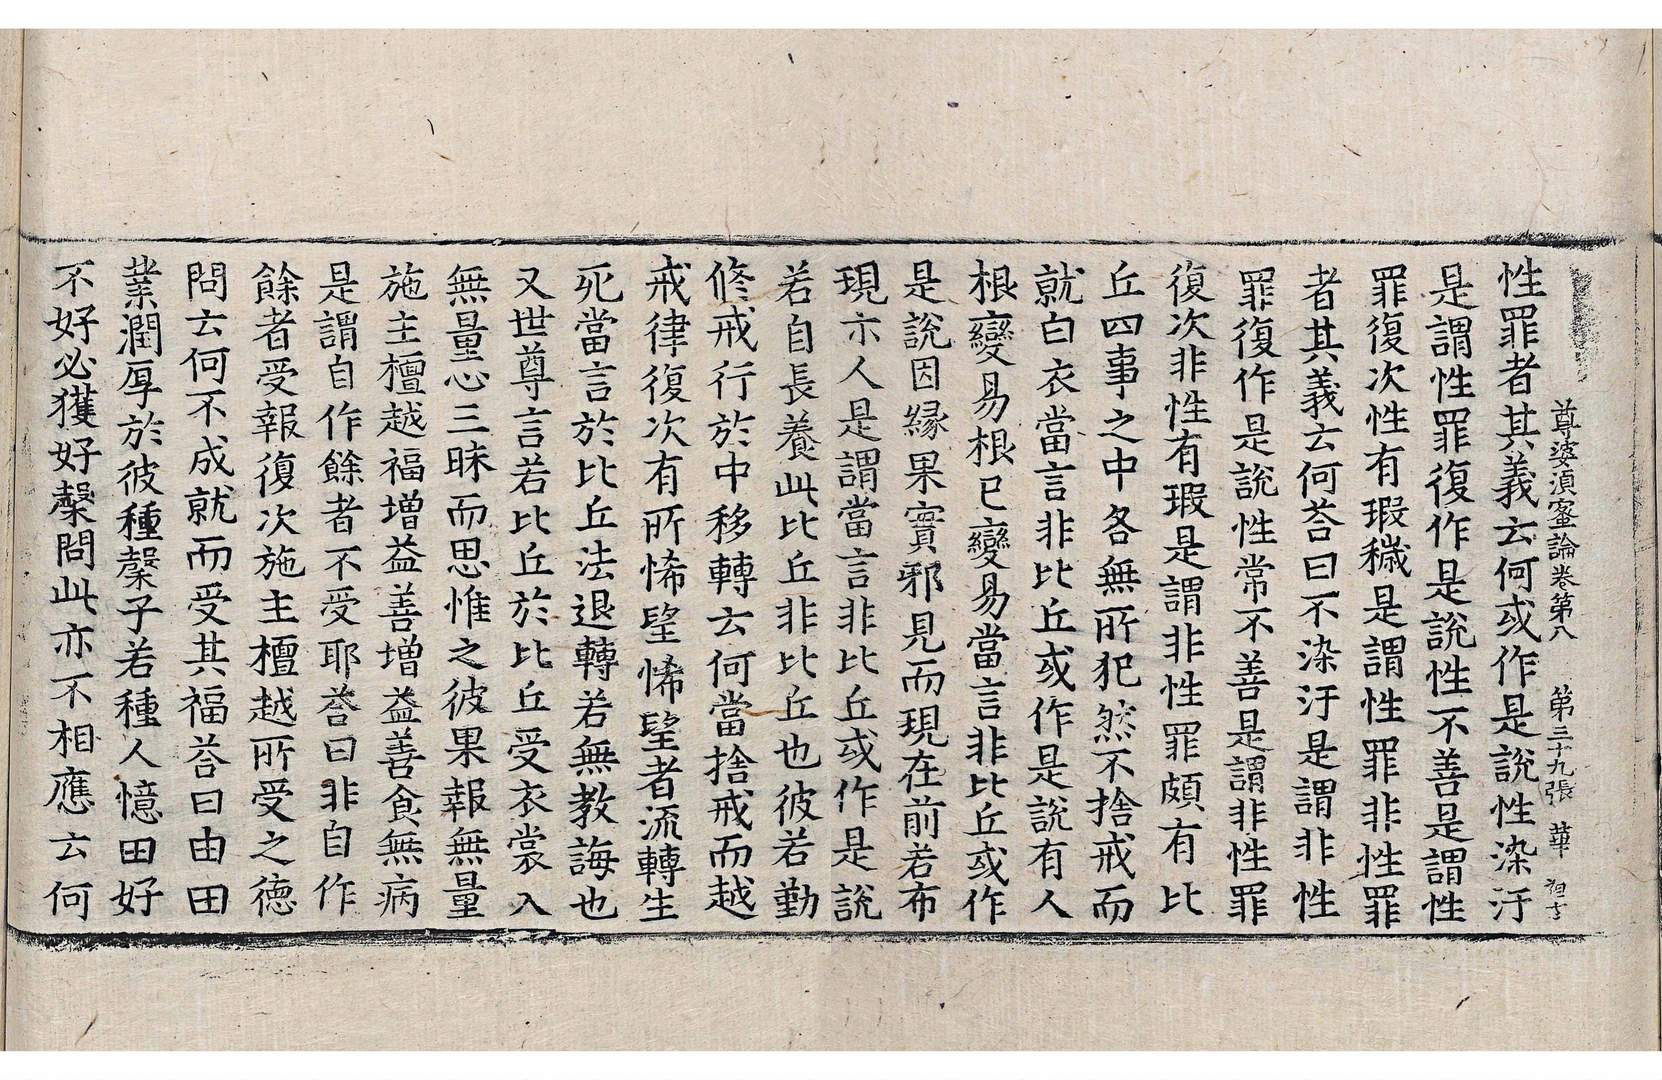 尊婆湏蜜論卷第八 第三十九張 華
性罪者其義云何或作是說性染汙
是謂性罪復作是說性不善是謂性
罪復次性有瑕穢是謂性罪非性罪
者其義云何荅曰不染汙是謂非性
罪復作是說性常不善是謂非性罪
復次非性有瑕是謂非性罪頗有比
丘四事之中各無所犯然不捨戒而
就白衣當言非比丘或作是說有人
根變易根已變易當言非比丘或作
是說因緣果實邪見而現在前若布
現示人是謂當言非比丘或作是說
若自長養此比丘非比丘也彼若勤
修戒行於中移轉云何當捨戒而越
戒律復次有所悕望悕望者流轉生
死當言於比丘法退轉若無教誨也
又世尊言若比丘於比丘受衣裳入
無量心三昧而思惟之彼果報無量
施主檀越福增益善增益善食無病
是謂自作餘者不受耶荅曰非自作
餘者受報復次施主檀越所受之德
問云何不成就而受其福荅曰由田
業潤厚於彼種䅽子若種人憶田好
不好必獲好䅽問此亦不相應云何